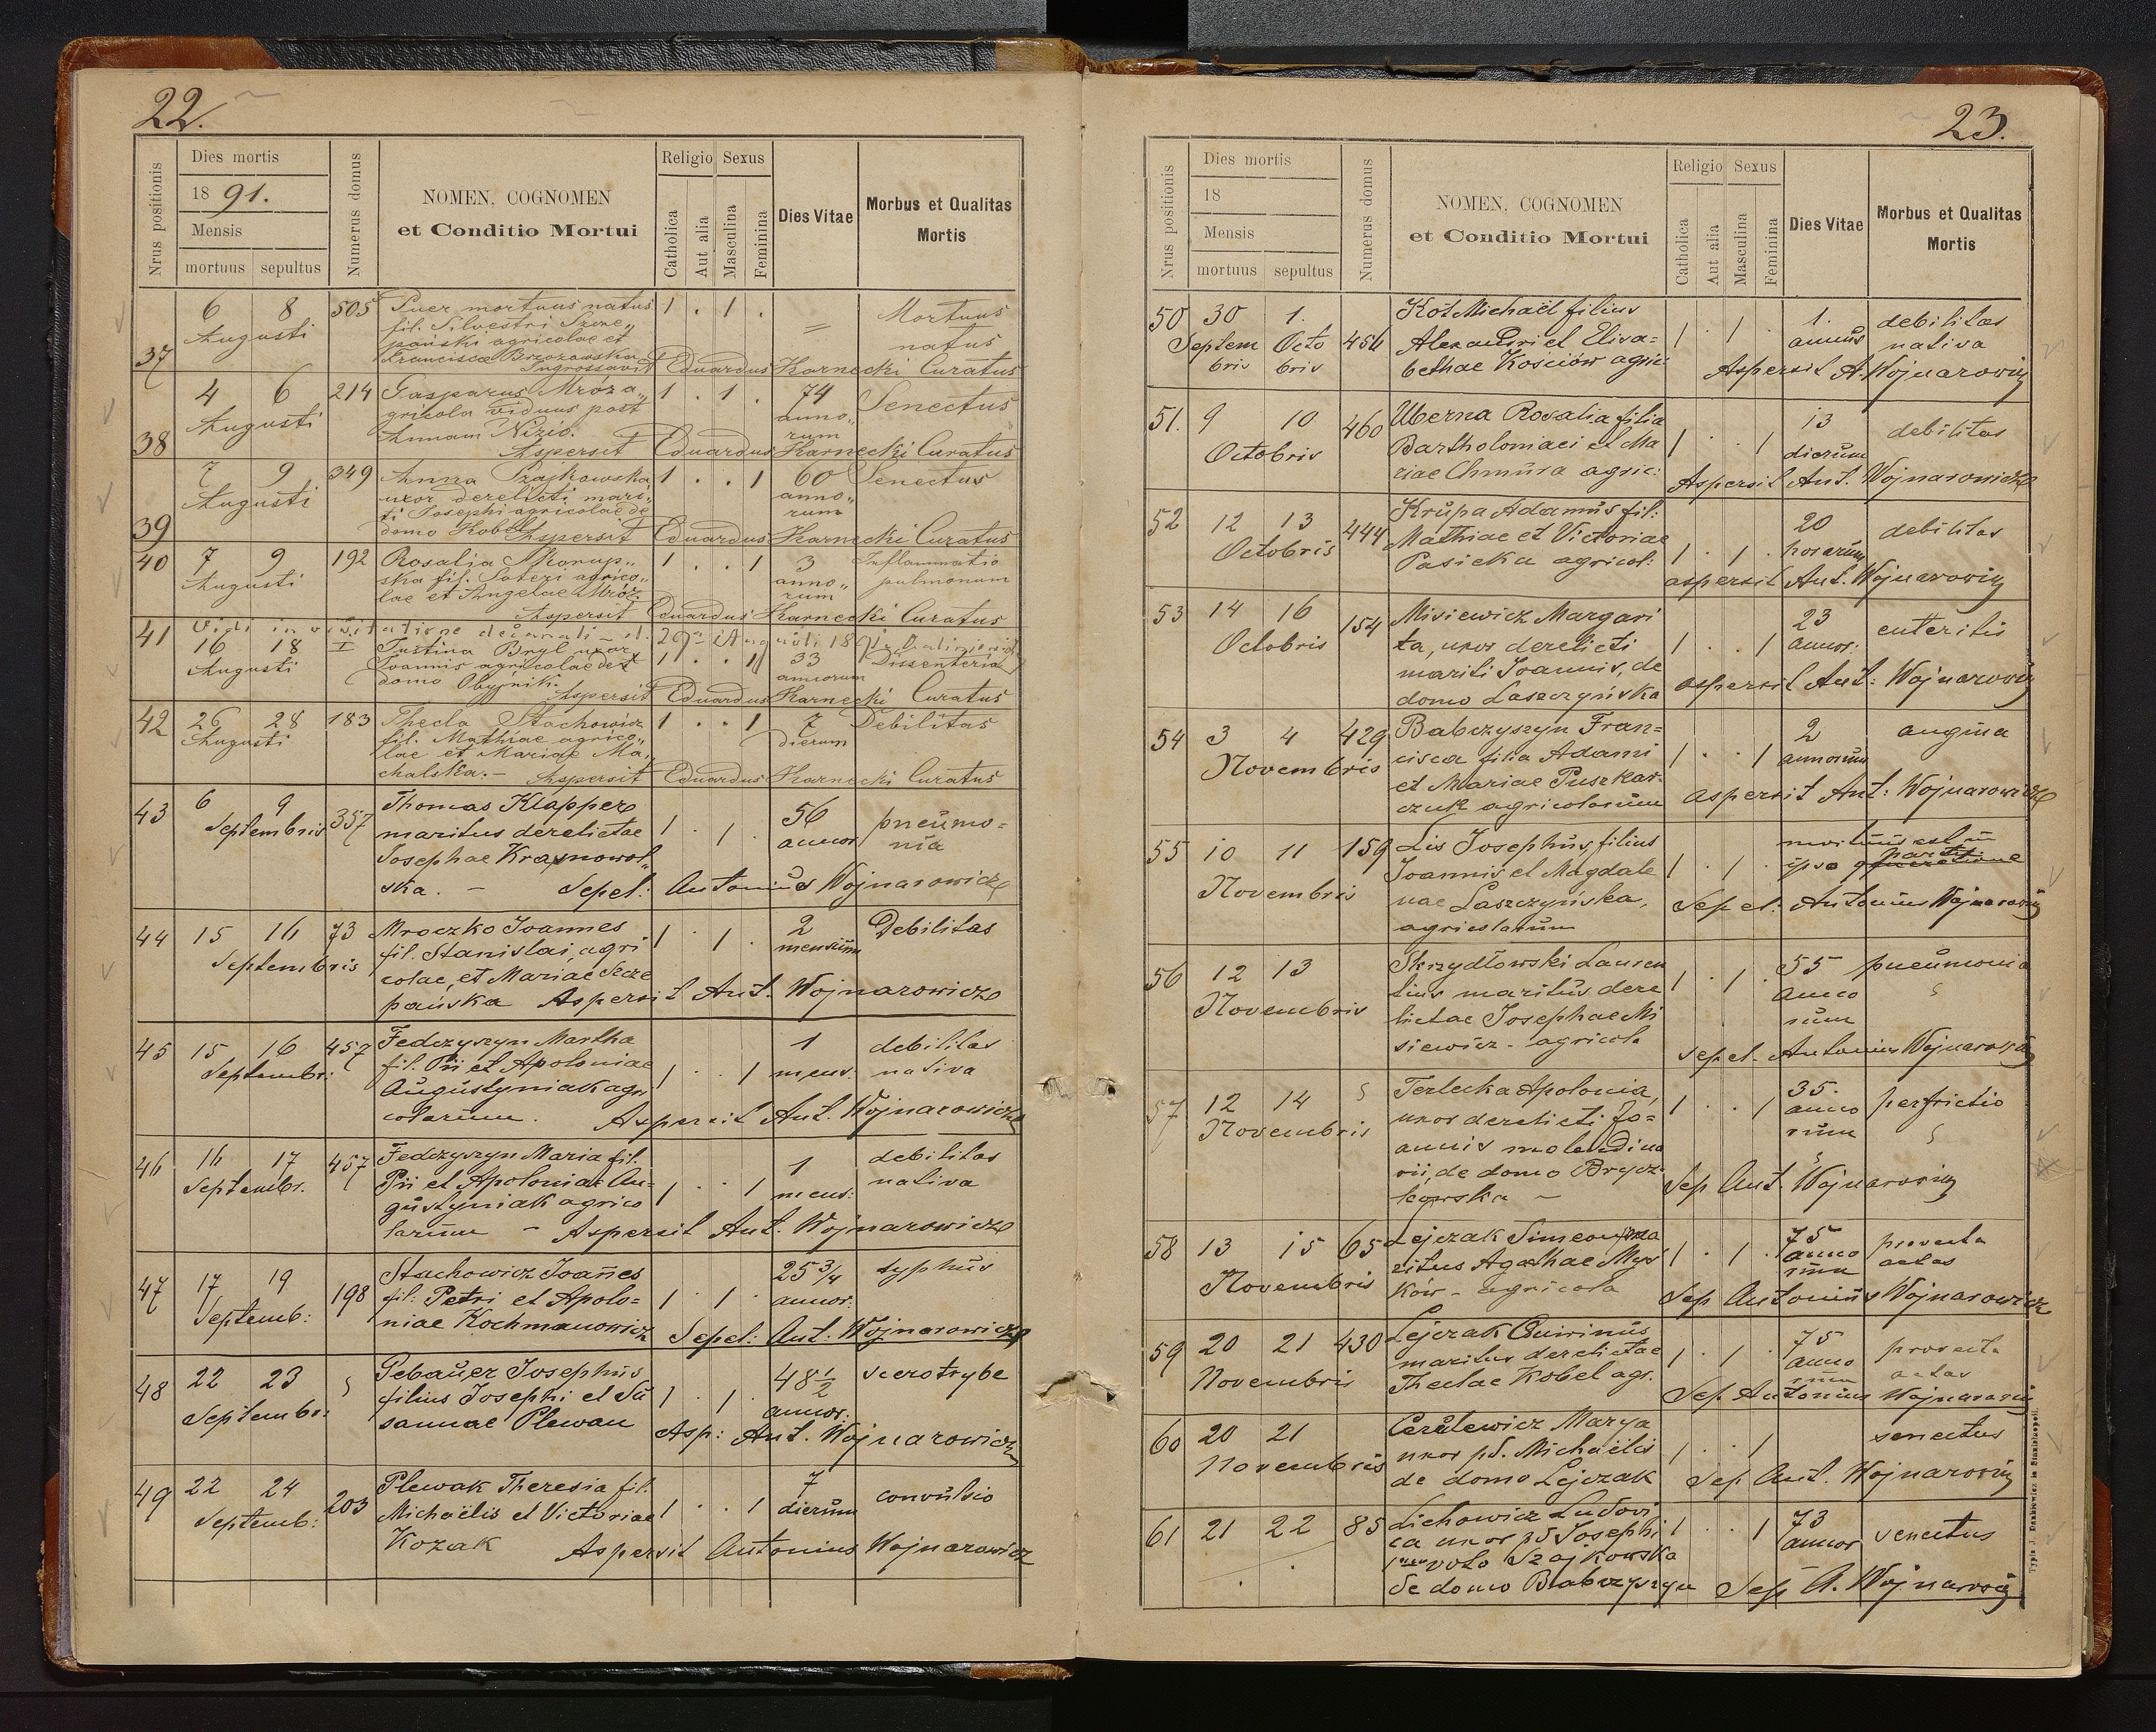 22.
Nrus positionis
Dies mortis
1891.
Mensis
mortuus sepultus
Numerus domus
NOMEN, COGNOMEN
et Conditio Mortui
Religio Sexus
Catholica
Aut alia
Masculina
Feminina
Dies Vitae
Morbus et Qualitas
Mortis
37 6 8 505 Puer mortuus natus 1 . 1 . = Mortuus
Augusti fil. Silvestri Szcze„ natus
pański agricolae et
Francisca Brzozowska
Ingrossavit Eduardus Karnecki Curatus
38 4 6 214 Gasparus Mróz a„ 1 . 1 . 74 Senectus
Augusti gricola viduus post anno„
Annam Nizio. rum
Aspersit Eduardus Karnecki Curatus
39 7 9 349 Anna Szajkowska 1 . . 1 60 Senectus
Augusti uxor derelicti mari„ anno„
ti Josephi agricolae de rum
domo Kobel Aspersit Eduardus Karnecki Curatus
40 7 9 192 Rosalia Skorup„ 1 . . 1 3 Inflammatio
Augusti ska fil. Soteri agrico„ anno„ pulmonum
lae et Angelae Mróz. rum
Aspersit Eduardus Karnecki Curatus
Vidi in visitatione decanali d. 29 Augusti 1891
41 16 18 I Justina Bryl uxor 1 . . 1 33 Dissenteria
Augusti Joannis agricolae de annorum
domo Obyjnik.
Aspersit Eduardus Karnecki Curatus
42 26 28 183 Thecla Stachowicz 1 . . 1 7 Debilitas
Augusti fil. Mathiae agrico„ dierum
lae et Mariae Ma„
chalska. – Aspersit Eduardus Karnecki Curatus
43 6 9 357 Thomas Klapper 1 . 1 . 56 pneumo=
Septembris maritus derelictae annor nia
Josephae Krasnowol„
ska. – Sepel: Antonius Wojnarowicz
44 15 16 73 Mroczko Joannes 1 . 1 . 2 Debilitas
Septembris fil. Stanislai, agri mensium
colae, et Mariae Szcze
pańska Aspersit Ant. Wojnarowicz
45 15 16 457 Fedczyszyn Martha 1 . . 1 1 debilitas
Septembr: fil. Pii et Apoloniae mens: nativa
Augustyniak agri
colarum. Aspersit Ant. Wojnarowicz
46 16 17 457 Fedczyszyn Maria fil. 1 . . 1 1 debilitas
Septembr. Pii et Apoloniae Au= mens: nativa
gustyniak agrico
larum – Aspersit Ant. Wojnarowicz
47 17 19 198 Stachowicz Joannes 1 . 1 . 25 3/4 typhus
Septemb: fil: Petri et Apolo= annor:
niae Kochmanowicz Sepel: Ant: Wojnarowicz
48 22 23 Gebauer Josephus 1 . 1 . 48 1/2 scerotrybe
Septembr: filius Josephi et Su annor:
sannae Plewan Asp: Ant. Wojnarowicz
49 22 24 203 Plewak Theresia fil. 1 . . 1 7 convulsio
Septemb: Michaëlis et Victoriae dierum
Kozak Aspersit Antonius Wojnarowicz
23.
Nrus positionis
Dies mortis
18
Mensis
mortuus sepultus
Numerus domus
NOMEN, COGNOMEN
et Conditio Mortui
Religio Sexus
Catholica
Aut alia
Masculina
Feminina
Dies Vitae
Morbus et Qualitas
Mortis
50 30 1. 456 Kot Michaël filius 1 . 1 . 1. debilitas
Septem Octo Alexandri et Elisa= annus nativa
bris bris bethae Kościów agric: Aspersit A. Wojnarowicz
51. 9 10 460 Uberna Rosalia filia 1 . . 1 13 debilitas
Octobris Bartholomaei et Ma dierum
riae Chmura agric: Aspersit Ant. Wojnarowicz
52 12 13 444 Krupa Adamus fil: 1 . 1 . 20 debilitas
Octobris Mathiae et Victoriae horarum
Pasieka agricol: aspersit Ant. Wojnarowicz
53 14 16 154 Misiewicz Margari 1 . . 1 23 enteritis
Octobris ta, uxor derelicti annor:
mariti Joannis, de
domo Laszczyńska aspersit Ant: Wojnarowicz
54 3 4 429 Babczyszyn Fran= 1 . . 1 2 angina
Novembris cisca filia Adami annorum
et Mariae Puszkar-
czuk agricolarum aspersit Ant: Wojnarowicz
55 10 11 159 Lis Josephus, filius 1 . 1 . mortuus est in
Novembris Joannis et Magdale ipso partu
nae Laszczyńska, Sepel: Antonius Wojnarowicz
agricolarum
56 12 13 Skrzydłowski Lauren 1 . 1 . 55 pneumonia
Novembris tius maritus dere anno
lictae Josephae Mi rum
siewicz - agricola sepel. Antonius Wojnarowicz
57 12 14 Terlecka Apolonia, 1 . . 1 35. perfrictio
Novembris uxor derelicti Jo= anno
annis molendina rum
rii, de domo Brycz-
kowska – Sep Ant. Wojnarowicz
58 13 15 65 Lejczak Simeon ma 1 . 1 . 75 provecta
Novembris ritus Agathae Mys anno aetas
ków - agricola rum
Sep Antonius Wojnarowicz
59 20 21 430 Lejczak Quirinus 1 . 1 . 75 provecta
Novembris maritus derelictae anno aetas
Theclae Kobel agr. rum
Sep Antonius Wojnarowicz
60 20 21 Cerulewicz Marya 1 . . 1 senectus
Novembris uxor pd. Michaëlis
de domo Lejczak Sep Ant. Wojnarowicz
61 21 22 85 Lichowicz Ludovi 1 . . 1 73 senectus
ca uxor pd Josephi annor
voto Szajkowska
de domo Babczyszyn Sep A. Wojnarowicz
Typis J. Dankiewicz in Stanislaopoli.